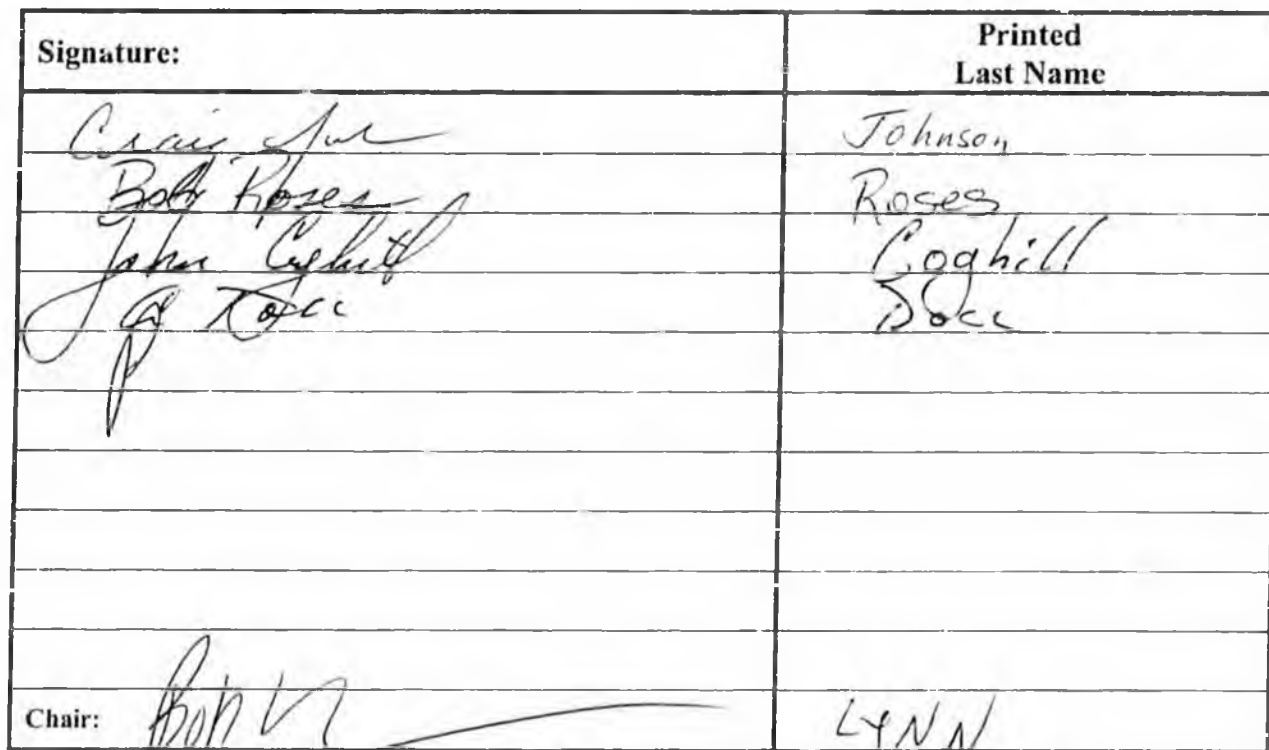 Signature: Printed
Last Name
Craig Johnson
Bob Roses Roses
John Coghill Coghill
Doll
Chair: Bob LYNN